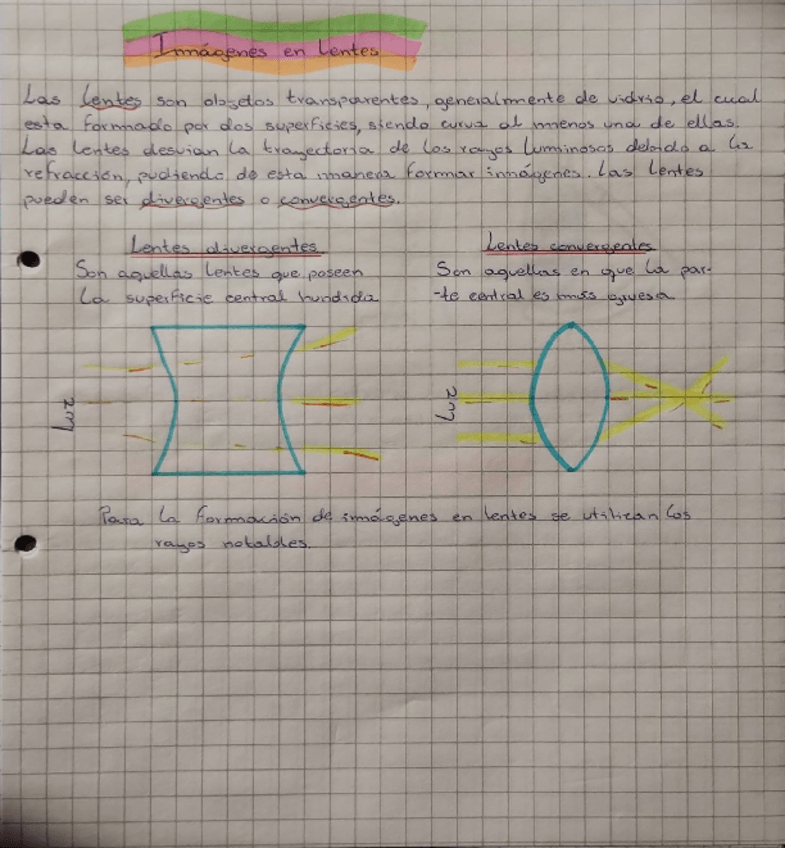 Imágenes en lentes
Las lentes son objetos transparentes, generalmente de vidrio, el cual
esta formado por dos superficies, siendo curva al menos una de ellas.
Las lentes desvian la trayectoria de los rayos luminosos debido a la
refracción, pudiendo de esta manera formar imágenes. Las lentes
pueden ser divergentes o convergentes.
Lentes divergentes
Son aquellas lentes que poseen
la superficie central hundida
Lentes convergentes
Son aquellas en que la par-
-te central es más gruesa
luz
luz
Para la formación de imágenes en lentes se utilizan los
rayos notables.